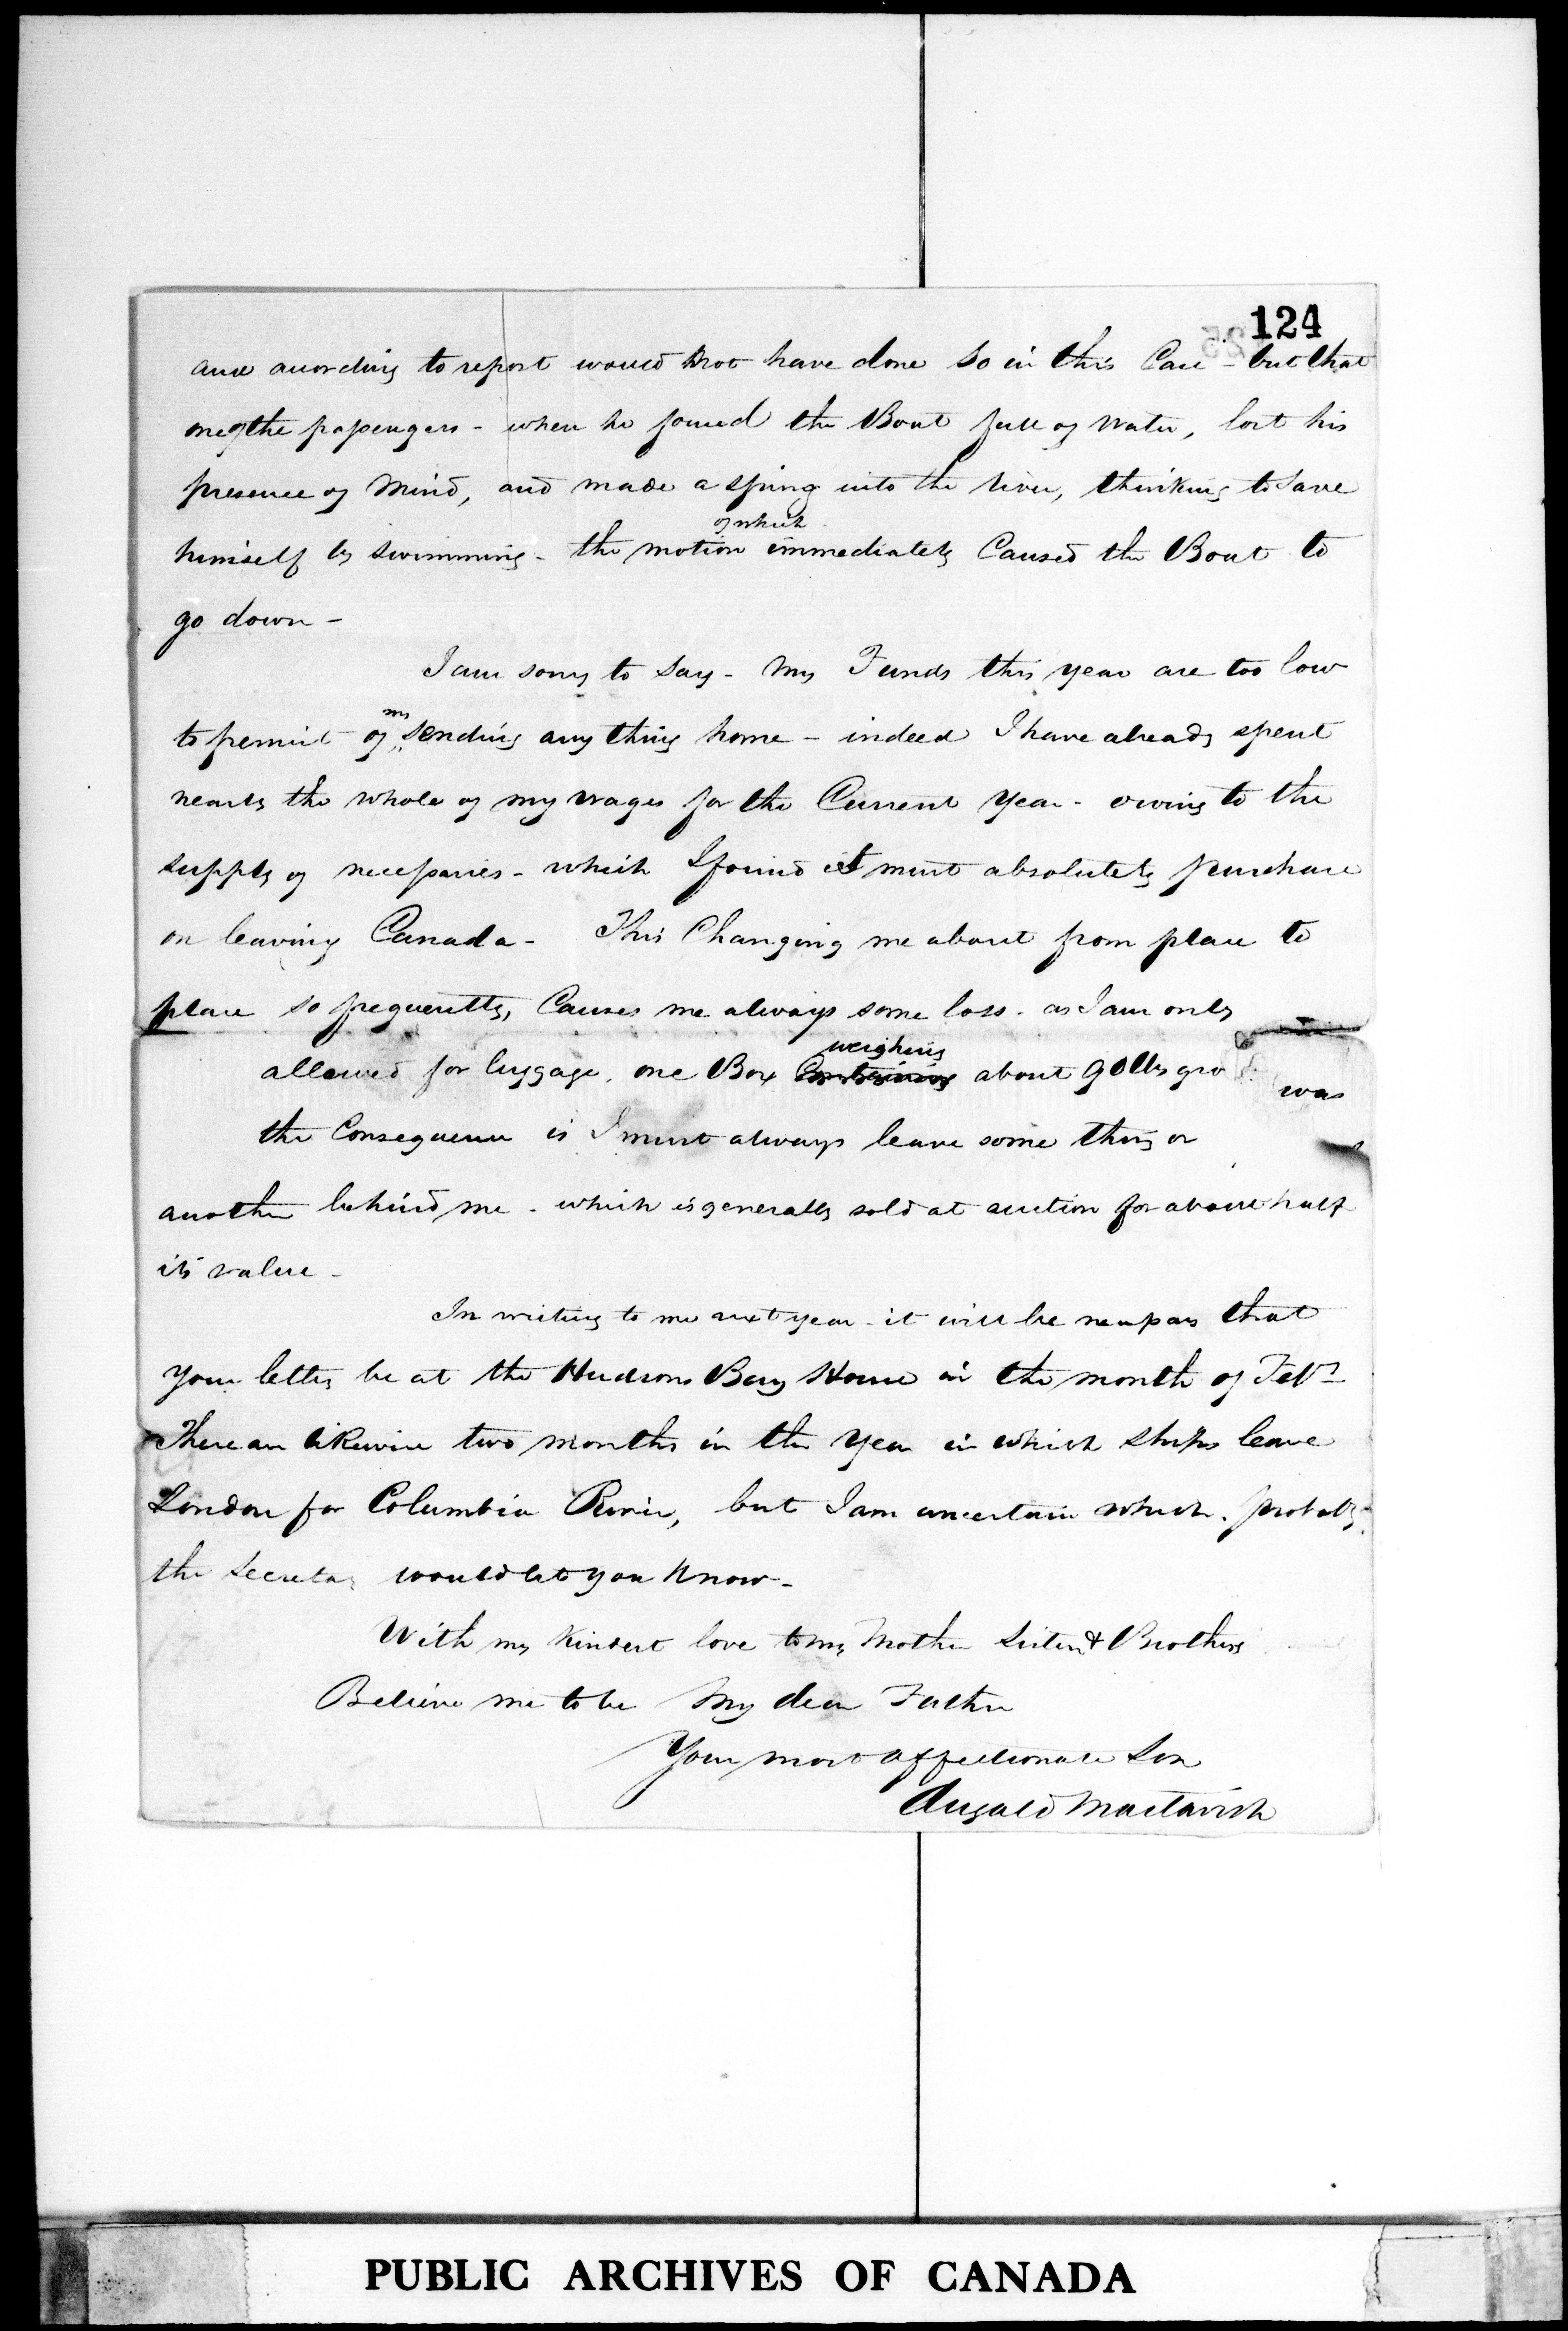 124
and according to report would not have done so in this Case - but that
one of the passengers - when he found the Boat full of Water, lost his
presence of Mind, and made a spring into the river, thinking to save
of which
himself by swimming - the motion immediately Caused the Boat to
go down -
I am sorry to say - my Funds this year are too low
my
to permit of sending any thing home - indeed I have already spent
nearly the whole of my wages for the Current Year - owing to the
supply of necessaries - which I found I must absolutely purchase
on leaving Canada - This Changing me about from place to
place so frequently, Causes me always some loss - as I am only
weighing
allowed for luggage, one Box containing about 90 lbs gro
was
the Consequence is I must always leave some thing or
another behind me - which is generally sold at auction for about half
its value -
In writing to me next year - it will be necessary that
your letters be at the Hudsons Bay House in the month of Feby
There are likewise two months in the Year in which ships leave
London for Columbia River, but I am uncertain which. probably
the Secretary would let you know -
With my kindest love to my Mother Sisters & Brothers
Believe me to be My dear Father
Your most affectionate Son
Dugald Mactavish
PUBLIC ARCHIVES OF CANADA